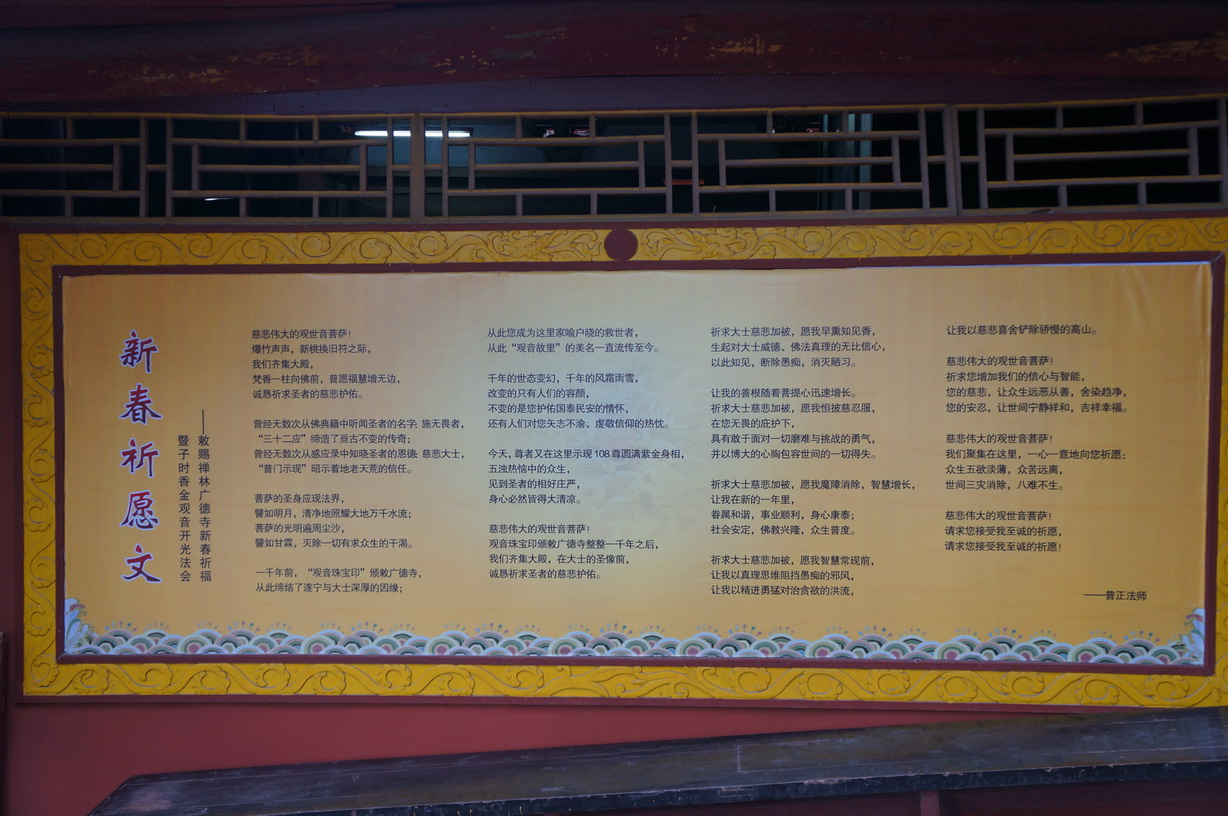 新春祈愿文
——敕赐禅林广德寺新春祈福
暨子时香金观音开光法会
慈悲伟大的观世音菩萨!
爆竹声声,新桃换旧符之际,
我们齐集大殿,
梵香一柱向佛前,普愿福慧增无边,
诚恳祈求圣者的慈悲护佑。
曾经无数次从佛典籍中听闻圣者的名字:施无畏者,
“三十二应”缔造了亘古不变的传奇;
曾经无数次从感应录中知晓圣者的恩德:慈悲大士,
“普门示现”昭示着地老天荒的信任。
菩萨的圣身应现法界,
譬如明月,清净地照耀大地万千水流;
菩萨的光明遍周尘沙,
譬如甘霖,灭除一切有求众生的干渴。
一千年前,“观音珠宝印”颁敕广德寺,
从此缔结了遂宁与大士深厚的因缘;
从此您成为这里家喻户晓的救世者,
从此“观音故里”的美名一直流传至今。
千年的世态变幻,千年的风霜雨雪,
改变的只有人们的容颜,
不变的是您护佑国泰民安的情怀,
还有人们对您矢志不渝、虔敬信仰的热忱。
今天,尊者又在这里示现108尊圆满紫金身相,
五浊热恼中的众生,
见到圣者的相好庄严,
身心必然皆得大清凉。
慈悲伟大的观世音菩萨!
观音珠宝印颁敕广德寺整整一千年之后,
我们齐集大殿,在大士的圣像前,
诚恳祈求圣者的慈悲护佑。
祈求大士慈悲加被,愿我早熏知见香,
生起对大士威德、佛法真理的无比信心,
以此知见,断除愚痴,消灭陋习。
让我的善根随着菩提心迅速增长。
祈求大士慈悲加被,愿我恒披慈忍服,
在您无畏的庇护下,
具有敢于面对一切磨难与挑战的勇气,
并以博大的心胸包容世间的一切得失。
祈求大士慈悲加被,愿我魔障消除,智慧增长,
让我在新的一年里,
眷属和谐,事业顺利,身心康泰;
社会安定,佛教兴隆,众生普度。
祈求大士慈悲加被,愿我智慧常现前,
让我以真理思维阻挡愚痴的邪风,
让我以精进勇猛对治贪欲的洪流,
让我以慈悲喜舍铲除骄慢的高山。
慈悲伟大的观世音菩萨!
祈求您增加我们的信心与智能,
您的慈悲,让众生远恶从善,舍染趋净,
您的安忍,让世间宁静祥和,吉祥幸福。
慈悲伟大的观世音菩萨!
我们聚集在这里,一心一意地向您祈愿:
众生五欲淡薄,众苦远离,
世间三灾消除,八难不生。
慈悲伟大的观世音菩萨!
请求您接受我至诚的祈愿,
请求您接受我至诚的祈愿!
——普正法师